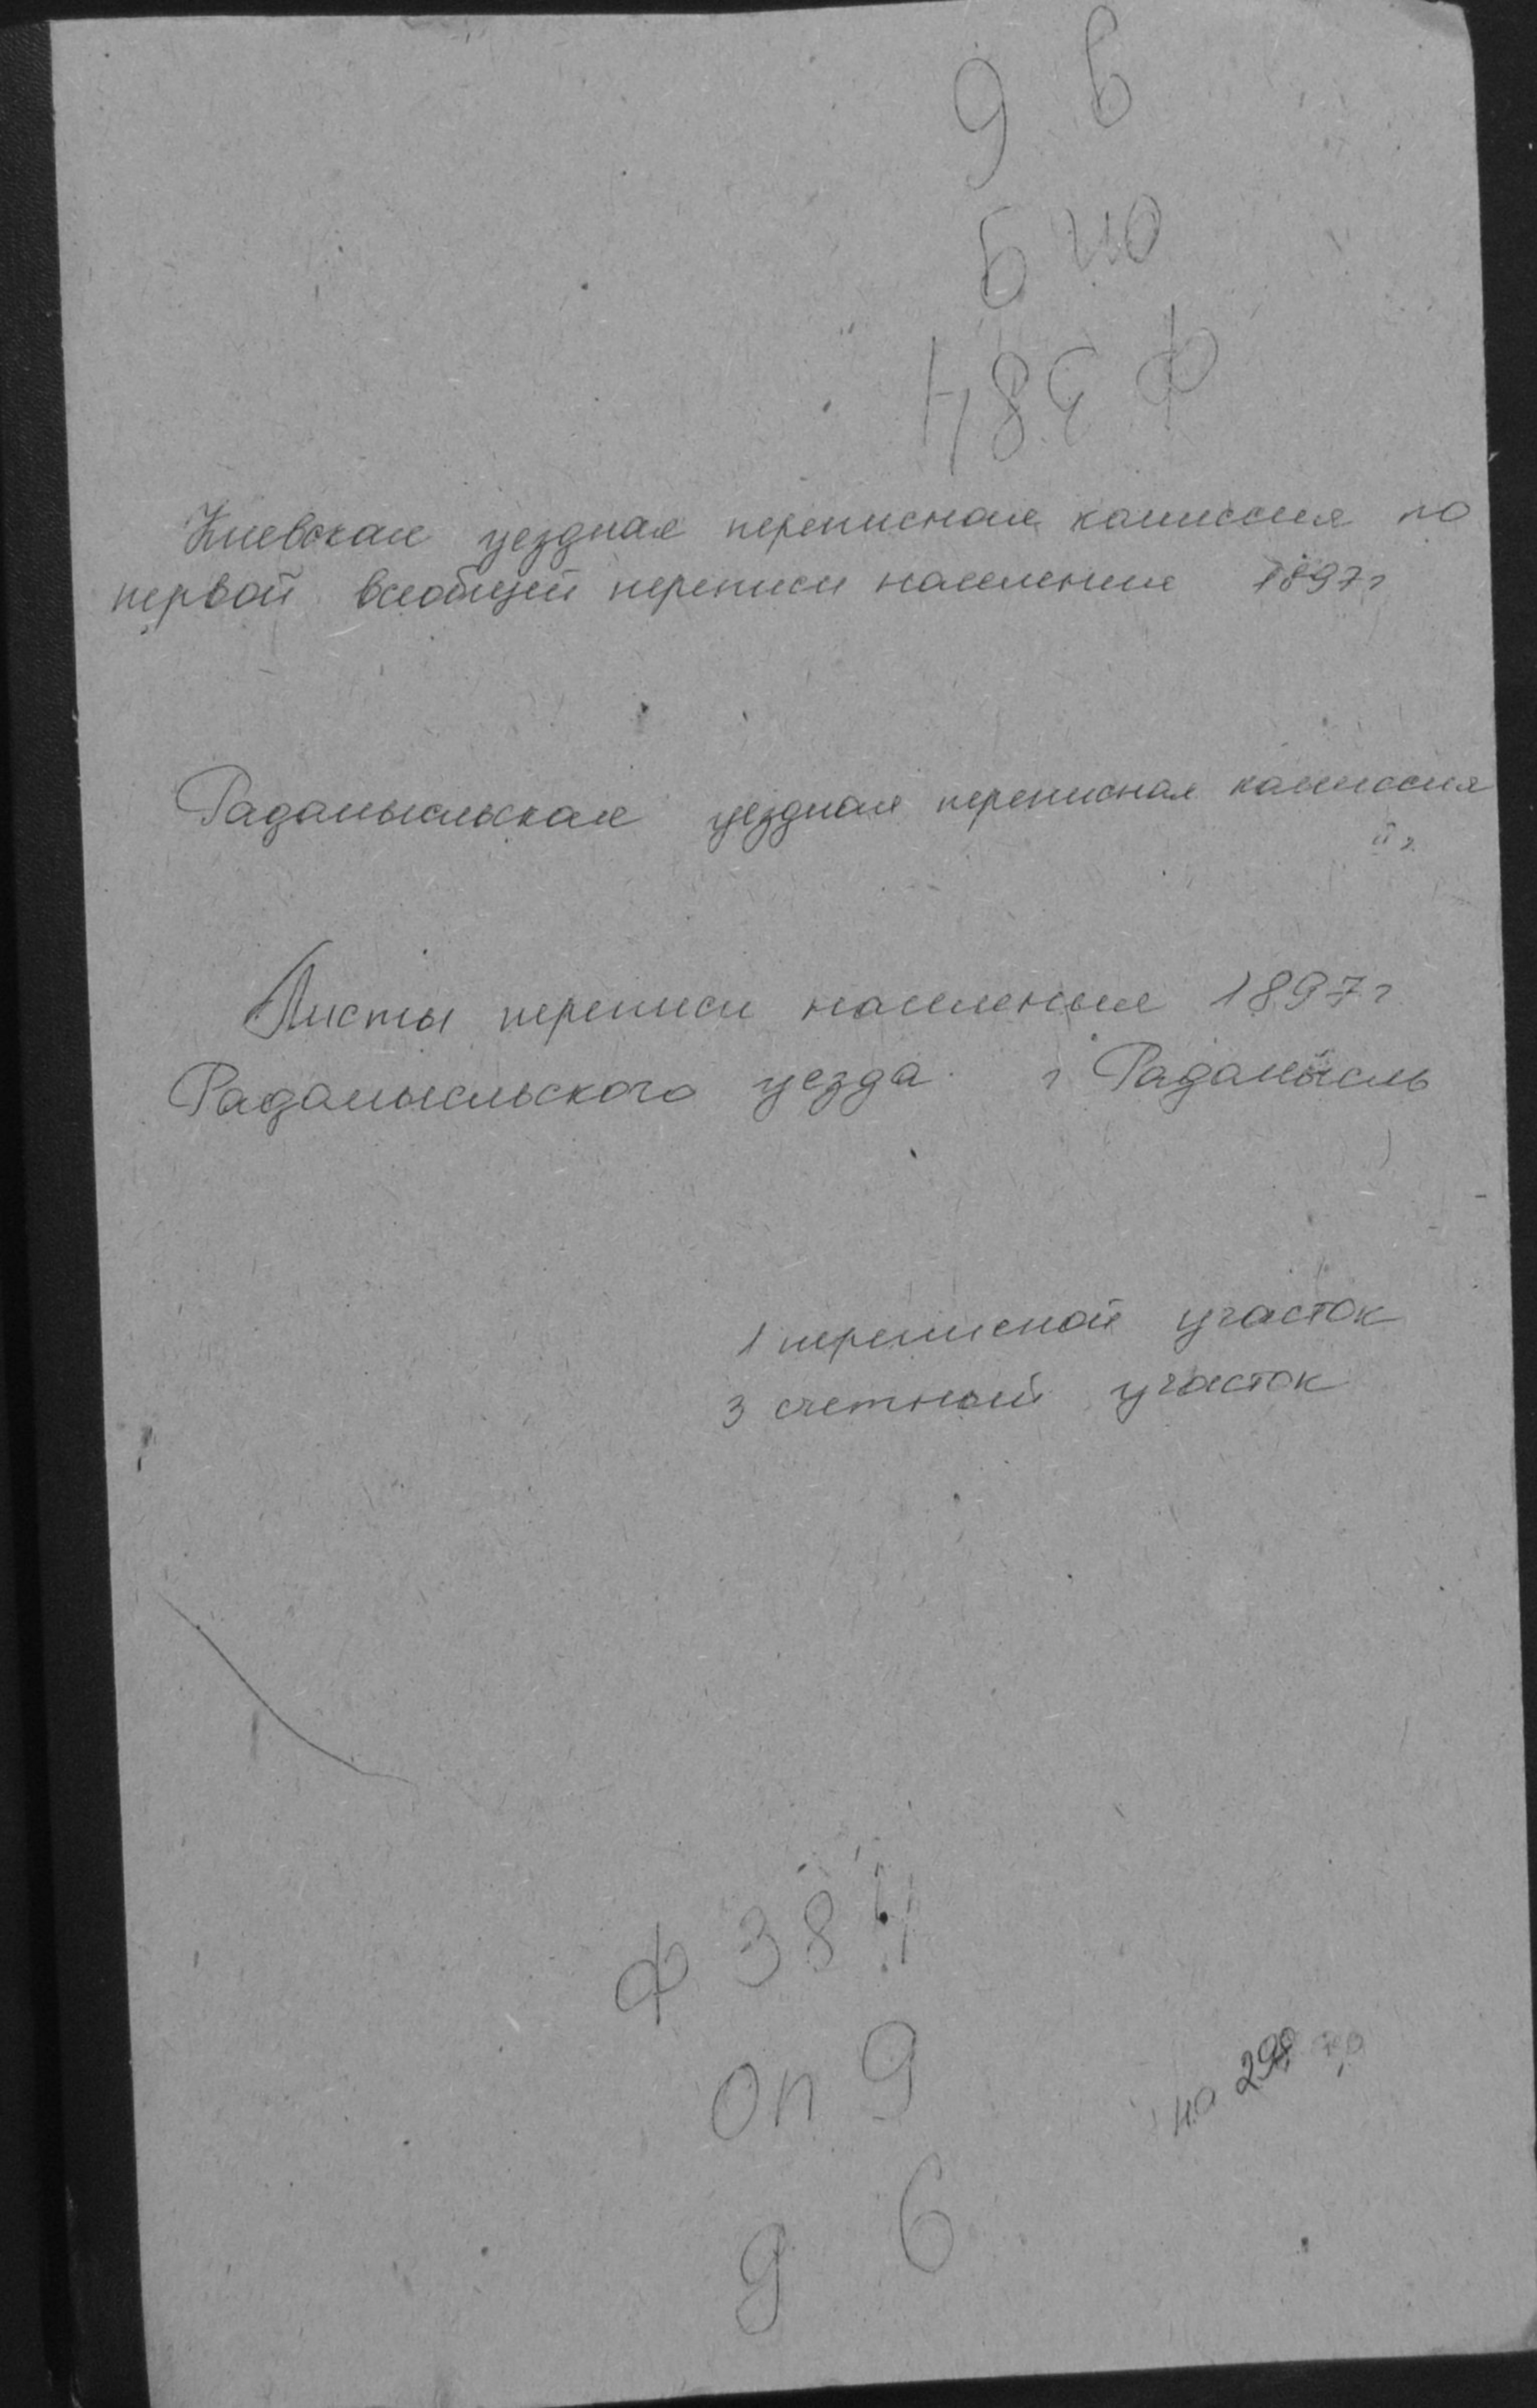 д 6
оп 9
ф 384
Киевская уездная переписная комиссия по
первой всеобщей переписи населения 1897 г
Радомысльская уездная переписная комиссия
Листы переписи населения 1897 г
Радомысльского уезда г Радомысль
1 переписной участок
3 счетный участок
ф 384
оп 9
на
д 6